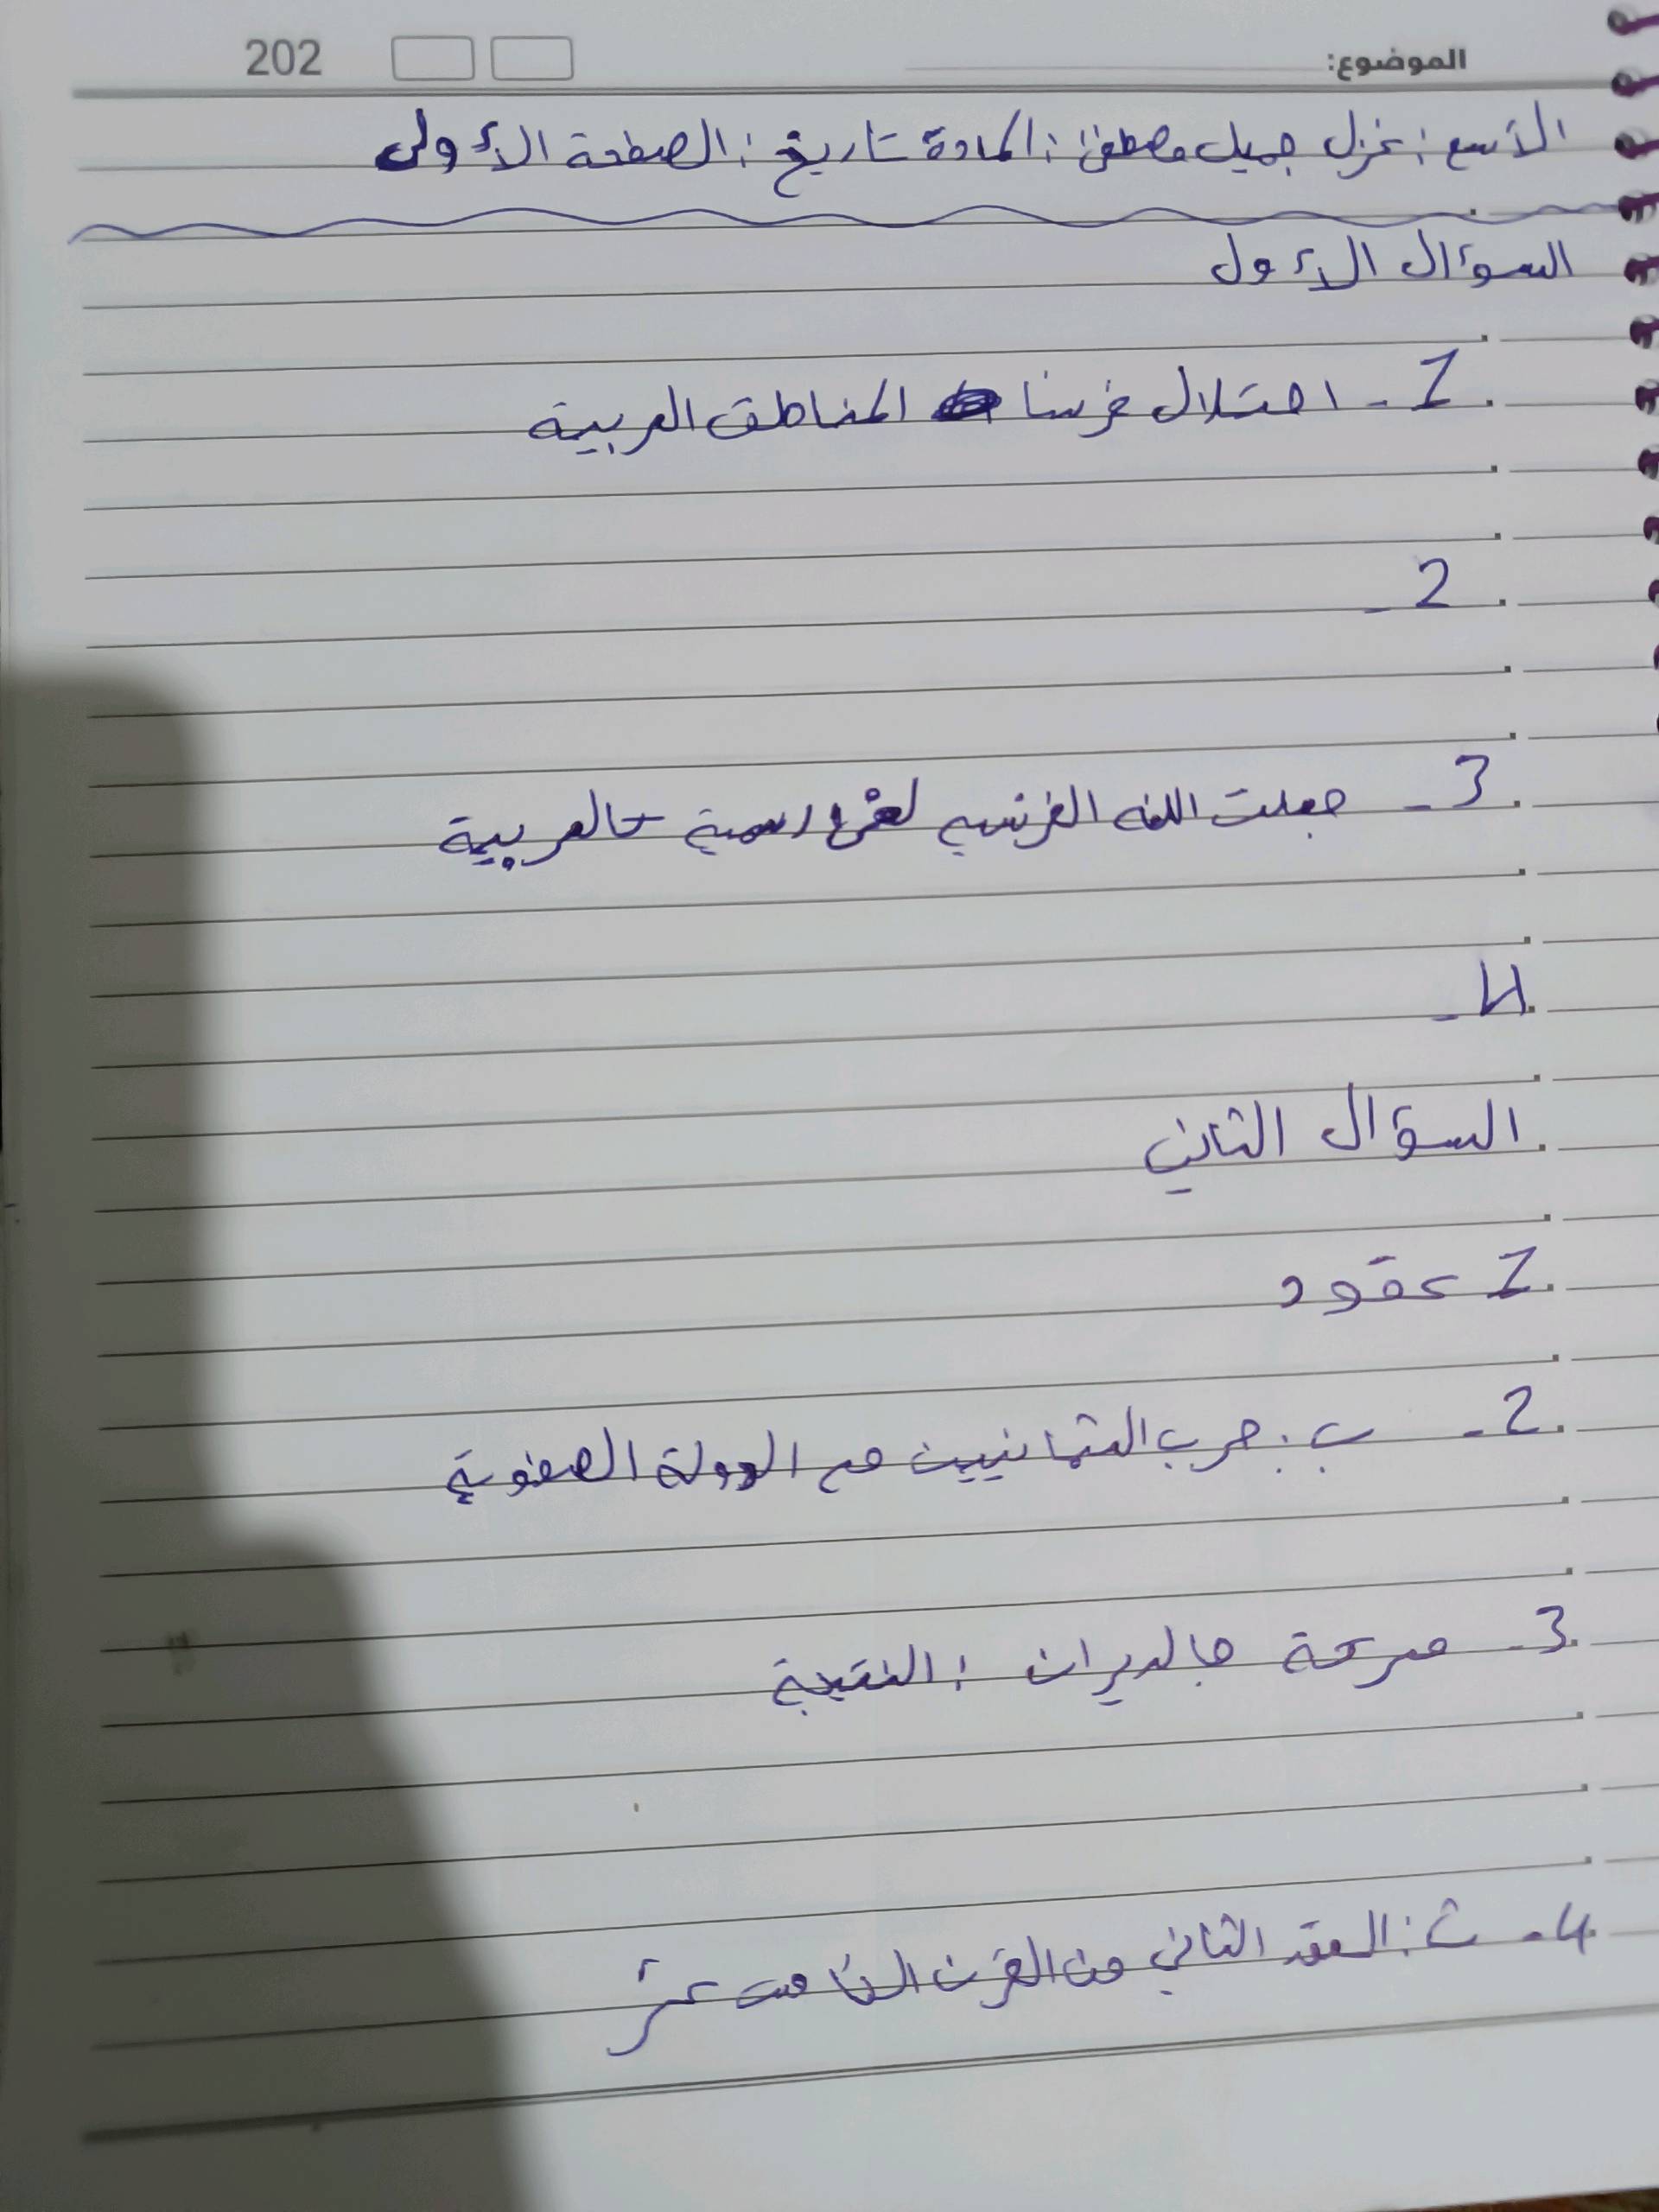 الموضوع: 202
الأسم : غزل جميل مصطفى : المادة تاريخ : الصفحة الأولى
السؤال الأول
1- احتلال فرنسا المناطق العربية
2-
3- جعلت اللغه الفرنسيه رسمية كالعربية
4-
السؤال الثاني
1 عقود
2- ب. حرب العثمانيين مع الدولة الصفوية
3- معركة جالديران : النتيجة
4- ث: العقد الثاني من القرن الثامن عشر